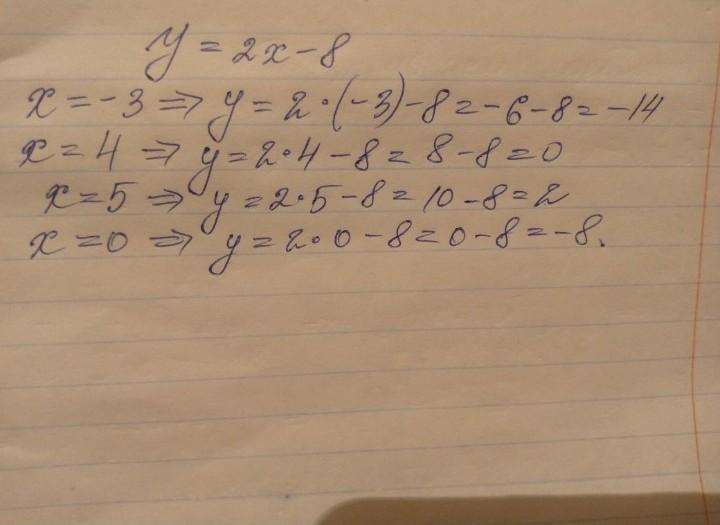 y = 2x - 8
x = -3 ⇒ y = 2·(-3) - 8 = -6 - 8 = -14
x = 4 ⇒ y = 2·4 - 8 = 8 - 8 = 0
x = 5 ⇒ y = 2·5 - 8 = 10 - 8 = 2
x = 0 ⇒ y = 2·0 - 8 = 0 - 8 = -8.